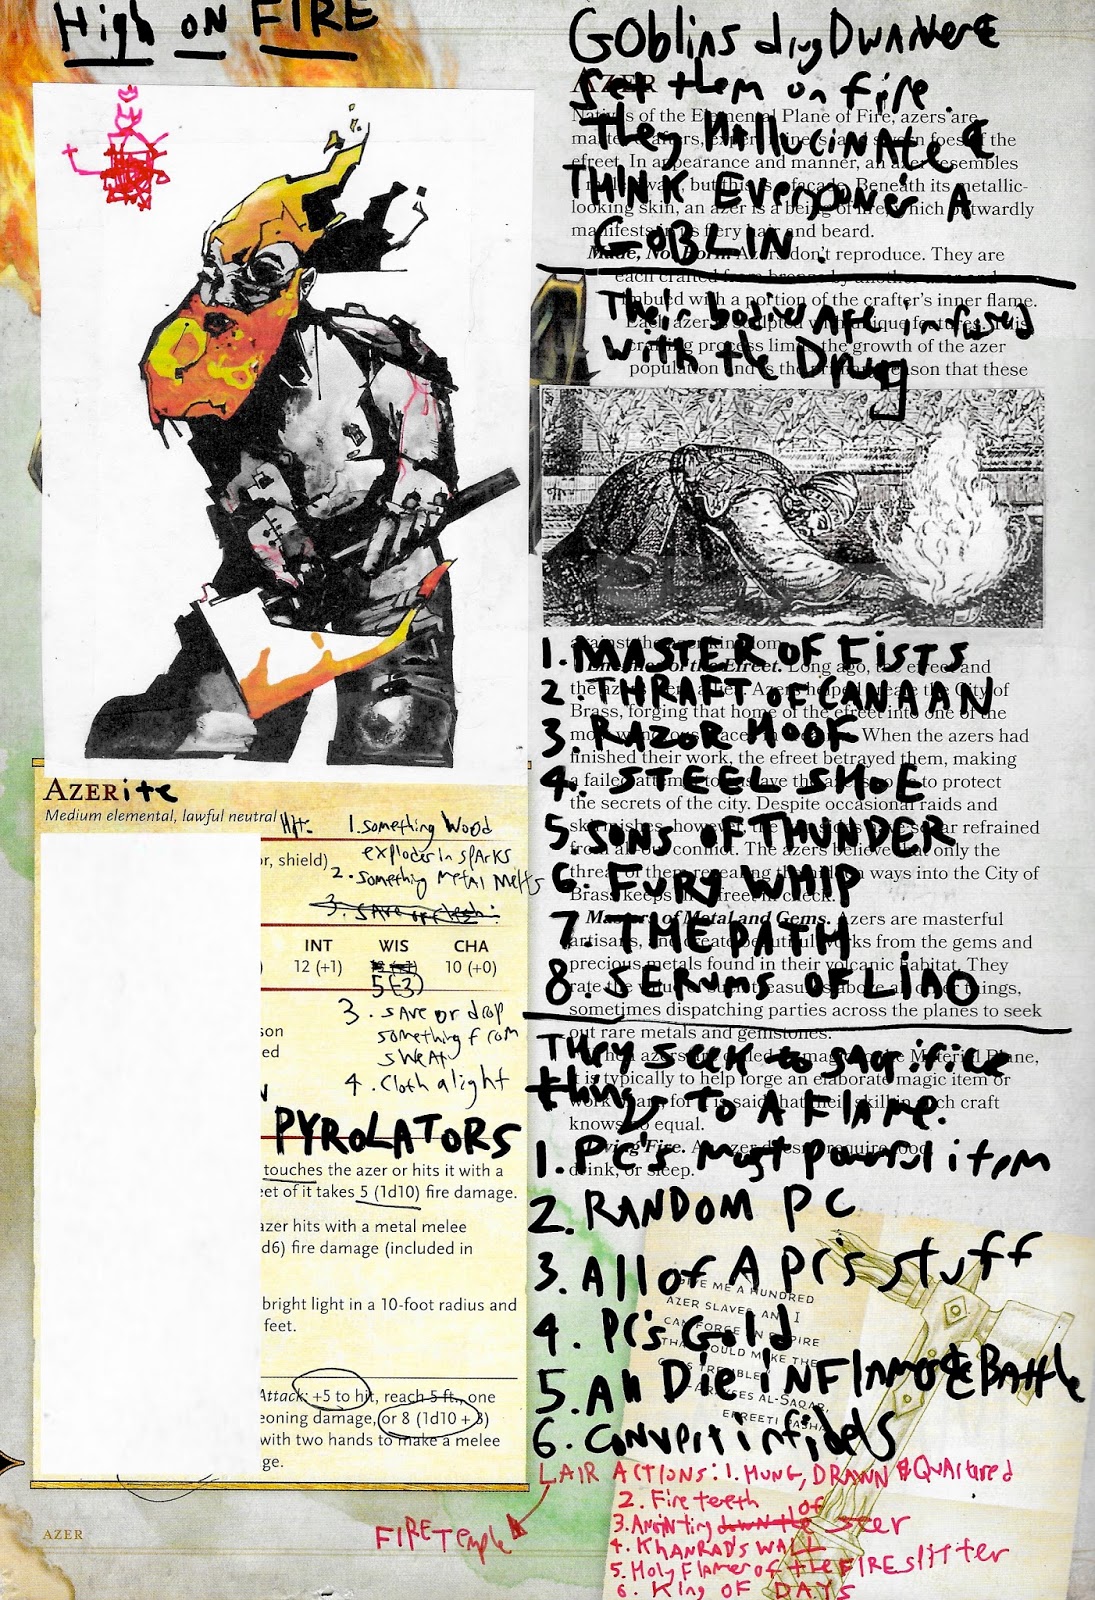 High on FIRE
Goblins drug Dwarves &
set them on fire.
They Hallucinate &
THINK Everyone's A
GOBLIN.
Their bodies are infused
with the Drug
AZER
Natives of the Elemental Plane of Fire, azers are
efreet. In appearance and manner, an azer resembles
Beneath its metallic-
looking skin, an azer is a being of fire, which outwardly
manifests in its fiery hair and beard.
Made, Not Born. Azers don't reproduce. They are
each crafted from bronze by another azer and
imbued with a portion of the crafter's inner flame.
Each azer is sculpted with unique features. This
crafting process limits the growth of the azer
population and is the primary reason that these
1. MASTER OF FISTS
2. THRAFT OF CANAAN
3. RAZOR HOOF
4. STEEL SHOE
5. SONS OF THUNDER
6. FURY WHIP
7. THE PATH
8. SERUMS OF LIAO
Enemies of the Efreet. Long ago, the efreet and
Brass, forging that home of the efreet into one of the
When the azers had
finished their work, the efreet betrayed them, making
a failed attempt to enslave the azers so as to protect
the secrets of the city. Despite occasional raids and
skirmishes, however,
refrained
only the
ways into the City of
Brass keeps the efreet in check.
Masters of Metal and Gems. Azers are masterful
artisans, and create beautiful works from the gems and
precious metals found in their volcanic habitat. They
sometimes dispatching parties across the planes to seek
out rare metals and gemstones.
They seek to sacrifice
things TO A Flame.
is typically to help forge an elaborate magic item or
such craft
knows no equal.
Living Fire. An azer doesn't require food,
drink, or sleep.
1. PC's most powerful item
2. RANDOM PC
3. All of A PC's stuff
4. PC's Gold
5. All Die in Flames & Battle
6. Convert infidels
GIVE ME A HUNDRED
AZER SLAVES AND I
CAN FORGE AN EMPIRE
THAT WOULD MAKE THE
TREMBLE
EFREETI PASHA
AZERite
Medium elemental, lawful neutral
Hit:
1. something Wood
explodes in sparks
2. something metal melts
or, shield)
INT WIS CHA
12 (+1) 10 (+0)
5 (-3)
3. save or drop
something from
sweat
4. Cloth alight
PYROLATORS
touches the azer or hits it with a
eet of it takes 5 (1d10) fire damage.
azer hits with a metal melee
d6) fire damage (included in
bright light in a 10-foot radius and
feet.
Attack: +5 to hit, reach 5 ft., one
eoning damage, or 8 (1d10 + 3)
with two hands to make a melee
ge.
AZER
LAIR ACTIONS: 1. HUNG, DRAWN & QUARTERED
FIRE Temple
2. Fire teeth
3. Anointing of seer
4. KHANRAD'S WALL
5. Holy Flames of the FIRE spitter
6. King OF DAYS